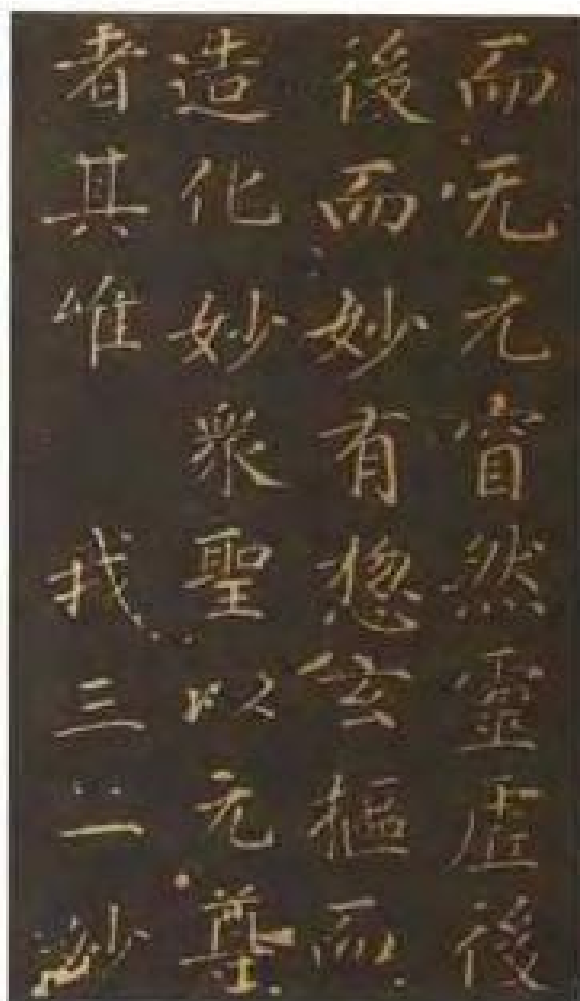 而无元窅然靈虛後
後而妙有惣玄樞而
造化妙衆聖以元尊
者其唯 我三一妙